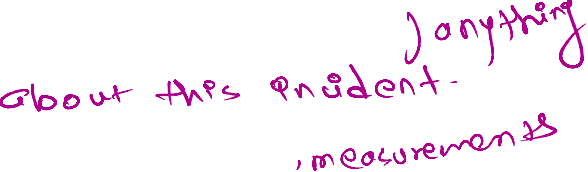 ) anything
about this incident.
, measurements